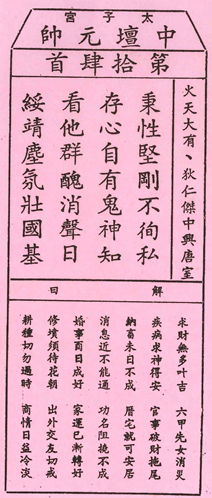 太子宮
中壇元帥
第拾肆首
火天大有、狄仁傑中興唐室
秉性堅剛不徇私
存心自有鬼神知
看他群醜消聲日
綏靖塵氛壯國基
解曰
求財無多叶吉
疾病求神得安
納畜未日不成
消息近不能通
婚事酉日成好
修墳須待花朝
耕種切勿過時
六甲先女消災
官事破財拖尾
厝宅就可安居
功名阻挽不成
家運已漸轉好
出外交友切戒
商情日益冷淡